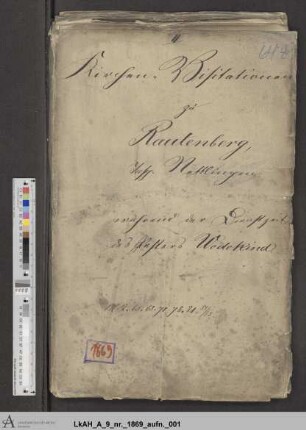 Kirchen-Visitationen
zu
Rautenberg,
Insp. Nettlingen
während der Dienstzeit
des Pastors Wedekind
1869
LkAH_A_9_nr._1869_aufn._001